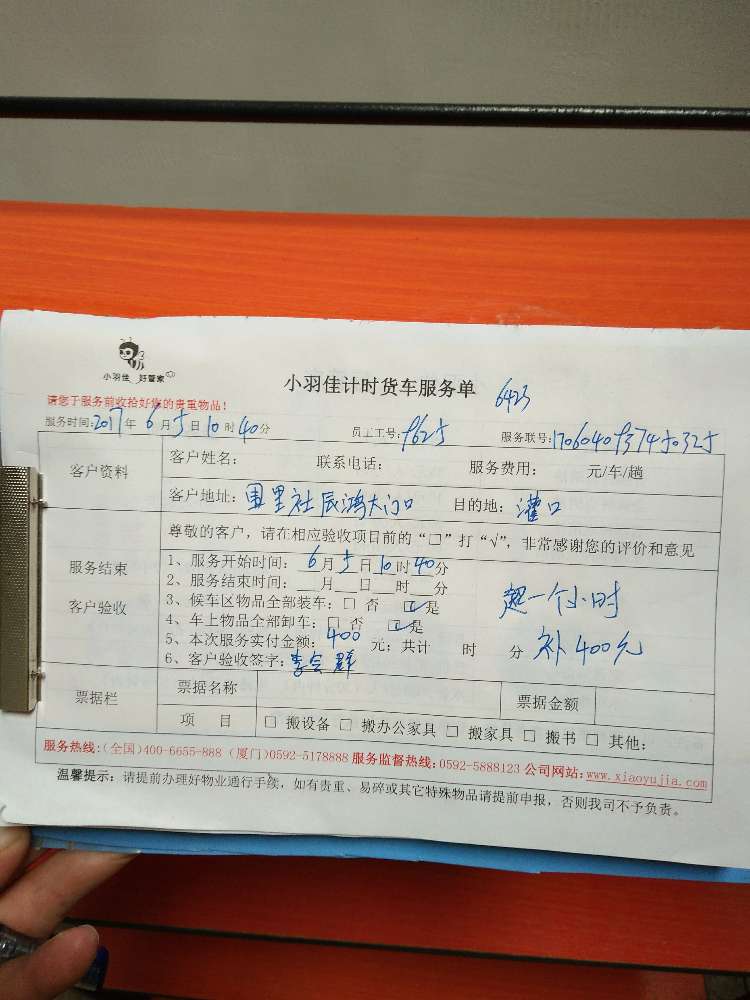 小羽佳 好管家
小羽佳计时货车服务单 6423
请您于服务前收拾好您的贵重物品！
服务时间:2017年6月5日10时40分 员工工号:9625 服务联号:
客户资料 客户姓名： 联系电话： 服务费用： 元/车/趟
客户地址：围里社辰鸿大门口 目的地：灌口
服务结束 客户验收
尊敬的客户，请在相应验收项目前的“□”打“√”，非常感谢您的评价和意见
1、服务开始时间：6月5日10时40分
2、服务结束时间：__月__日__时__分
3、候车区物品全部装车：□ 否 ☑是
4、车上物品全部卸车：□ 否 ☑是
超一个小时
5、本次服务实付金额：400 元；共计 时 分
补400元
6、客户验收签字：李会群
票据栏 票据名称 票据金额
项 目 □ 搬设备 □ 搬办公家具 □ 搬家具 □ 搬书 □ 其他：
服务热线:(全国)400-6655-888 (厦门)0592-5178888 服务监督热线:0592-5888123 公司网站:www.xiaoyujia.com
温馨提示：请提前办理好物业通行手续，如有贵重、易碎或其它特殊物品请提前申报，否则我司不予负责。